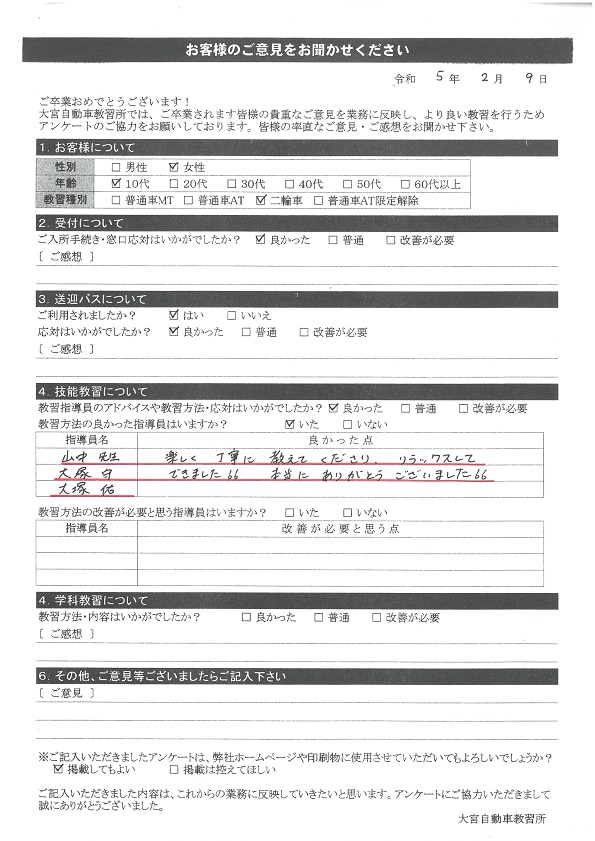 お客様のご意見をお聞かせください
令和 5 年 2 月 9 日
ご卒業おめでとうございます！
大宮自動車教習所では、ご卒業されます皆様の貴重なご意見を業務に反映し、より良い教習を行うため
アンケートのご協力をお願いしております。皆様の率直なご意見・ご感想をお聞かせ下さい。
1. お客様について
性別 □ 男性 ☑ 女性
年齢 ☑ 10代 □ 20代 □ 30代 □ 40代 □ 50代 □ 60代以上
教習種別 □ 普通車MT □ 普通車AT ☑ 二輪車 □ 普通車AT限定解除
2. 受付について
ご入所手続き・窓口応対はいかがでしたか？ ☑ 良かった □ 普通 □ 改善が必要
〔 ご感想 〕
3. 送迎バスについて
ご利用されましたか？ ☑ はい □ いいえ
応対はいかがでしたか？ ☑ 良かった □ 普通 □ 改善が必要
〔 ご感想 〕
4. 技能教習について
教習指導員のアドバイスや教習方法・応対はいかがでしたか？ ☑ 良かった □ 普通 □ 改善が必要
教習方法の良かった指導員はいますか？ ☑ いた □ いない
指導員名 良かった点
山中 先生 楽しく 丁寧に 教えて くださり、 リラックスして
大塚 守 できました 66 本当に ありがとう ございました 66
大塚 佑
教習方法の改善が必要と思う指導員はいますか？ □ いた □ いない
指導員名 改善が必要と思う点
4. 学科教習について
教習方法・内容はいかがでしたか？ □ 良かった □ 普通 □ 改善が必要
〔 ご感想 〕
6. その他、ご意見等ございましたらご記入下さい
〔 ご意見 〕
※ご記入いただきましたアンケートは、弊社ホームページや印刷物に使用させていただいてもよろしいでしょうか？
☑ 掲載してもよい □ 掲載は控えてほしい
ご記入いただきました内容は、これからの業務に反映していきたいと思います。アンケートにご協力いただきまして
誠にありがとうございました。
大宮自動車教習所